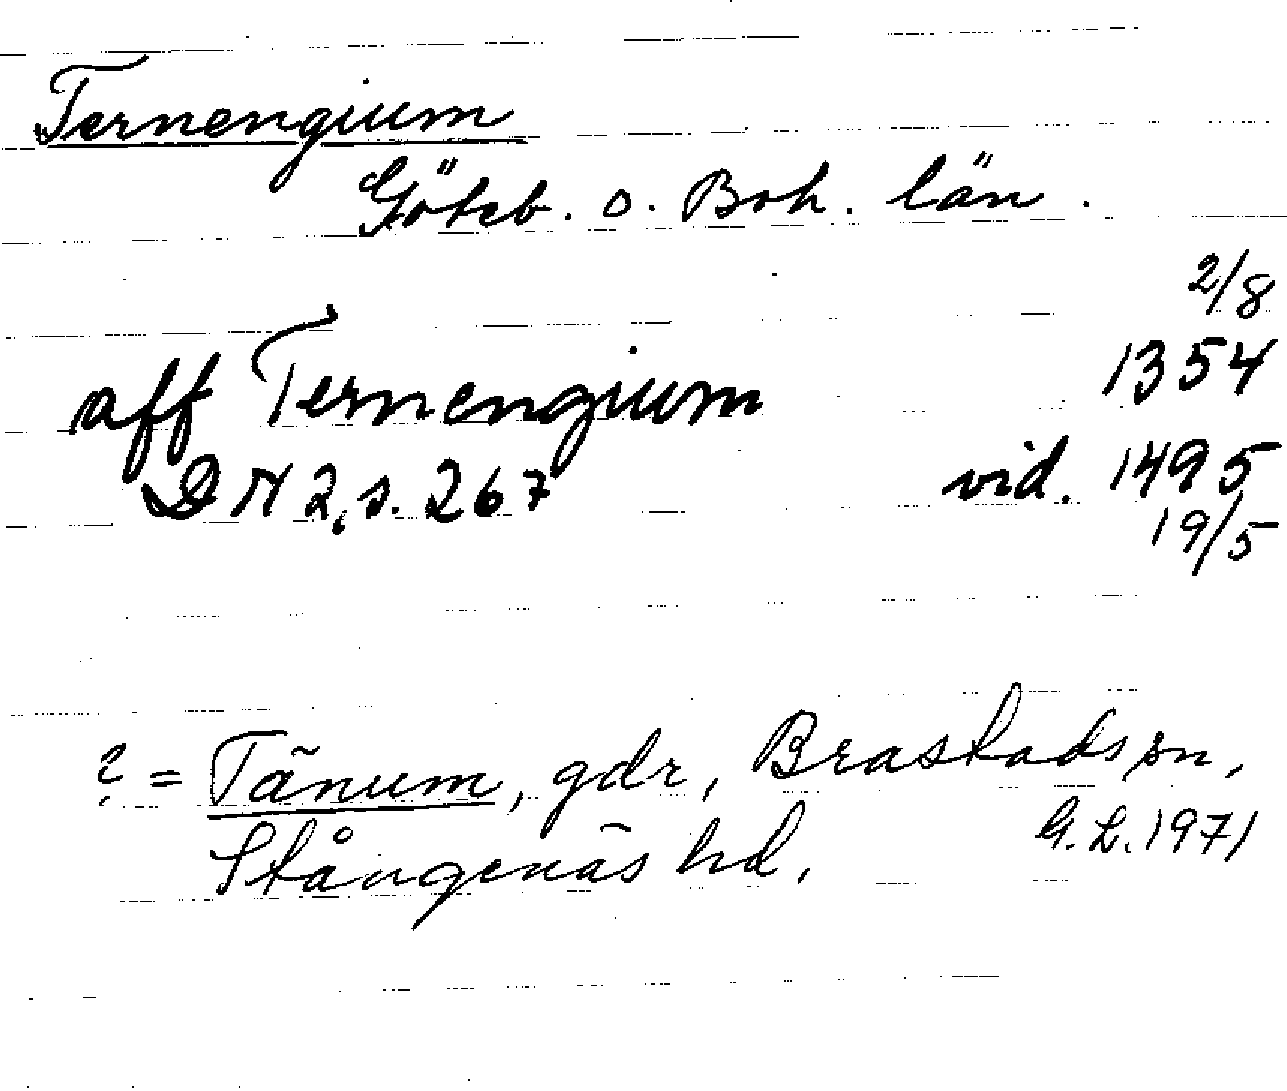 Ternengium
Göteb. o. Boh. län.
2/8
aff Ternengium 1354
DN 2, s. 267 vid. 1495
19/5
? = Tānum, gdr, Brastads sn,
Stångenäs hd. G.L. 1971